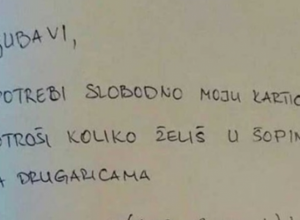 JUBAVI,
POTREBI SLOBODNO MOJU KARTIC
OTROŠI KOLIKO ŽELIŠ U ŠOPIN
A DRUGARICAMA